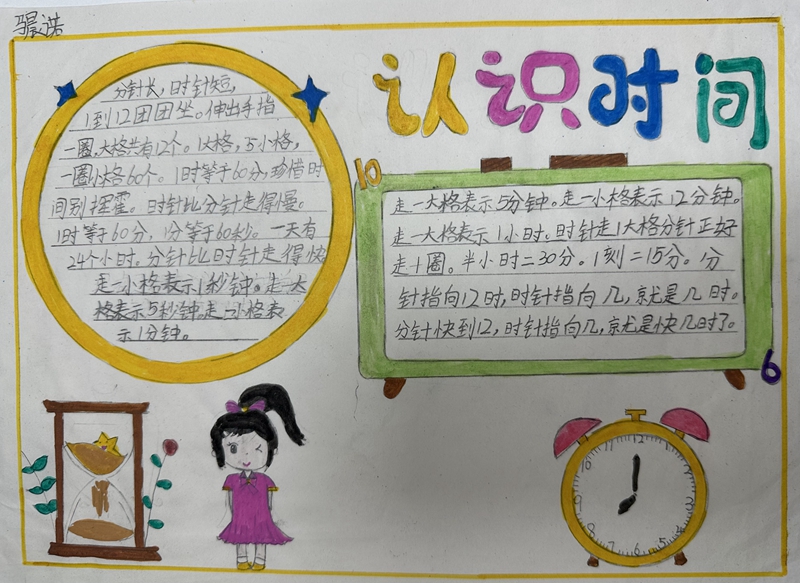 骎诺
认识时间
分针长，时针短，
1到12团团坐。伸出手指
一圈，大格共有12个。1大格，5小格，
一圈小格60个。1时等于60分，珍惜时
间别挥霍。时针比分针走得慢。
1时等于60分，1分等于60秒。一天有
24个小时。分针比时针走得快
走一小格表示1秒钟。走一大
格表示5秒钟。走一小格表
示1分钟。
10
走一大格表示5分钟。走一小格表示12分钟。
走一大格表示1小时。时针走1大格分针正好
走十圈。半小时=30分。1刻=15分。1分
针指向12时，时针指向几，就是几时。
分针快到12，时针指向几，就是快几时了。
6
12
11
1
10
2
9
3
8
4
7
6
5